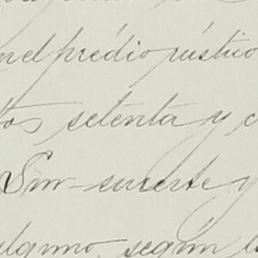 el prédio rústico
tos setenta y c
Sin suerte y
alguno, según l